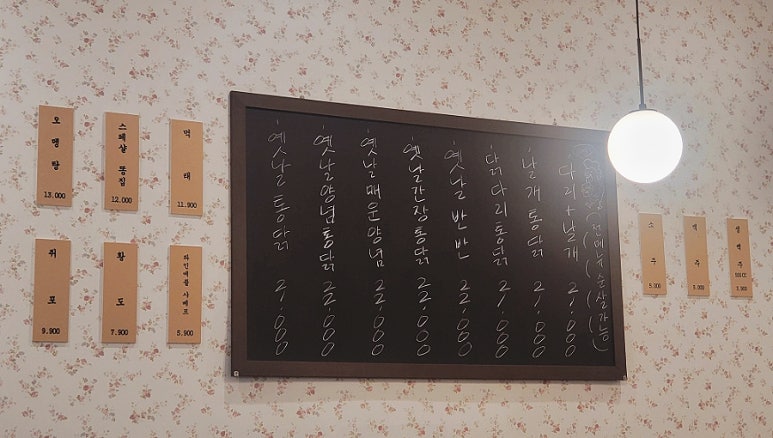 오뎅탕
13.000
스페샬 똥집
12.000
먹태
11.900
쥐포
9.900
황도
7.900
파인애플 샤베트
5.900
옛날통닭 21.000
옛날양념통닭 22.000
옛날매운양념 22.000
옛날간장통닭 22.000
옛날반반 22.000
닭다리통닭 21.000
날개통닭 21.000
다리+날개 21.000
전메뉴 순살가능
소주
5.000
맥주
5.000
생맥주
3.900